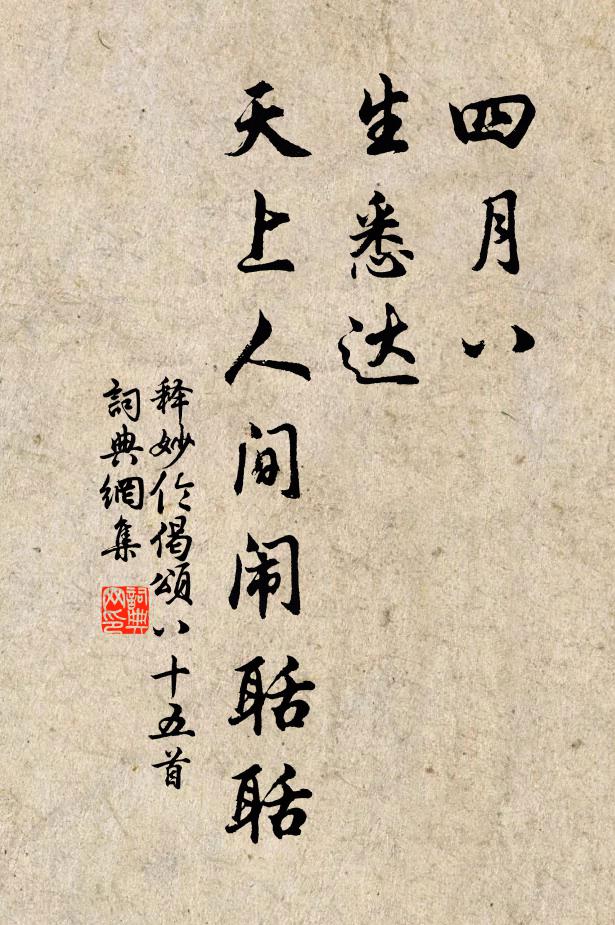 四月八
生悉达
天上人间闹聒聒
释妙伦偈颂八十五首
詞典網集
詞典网印